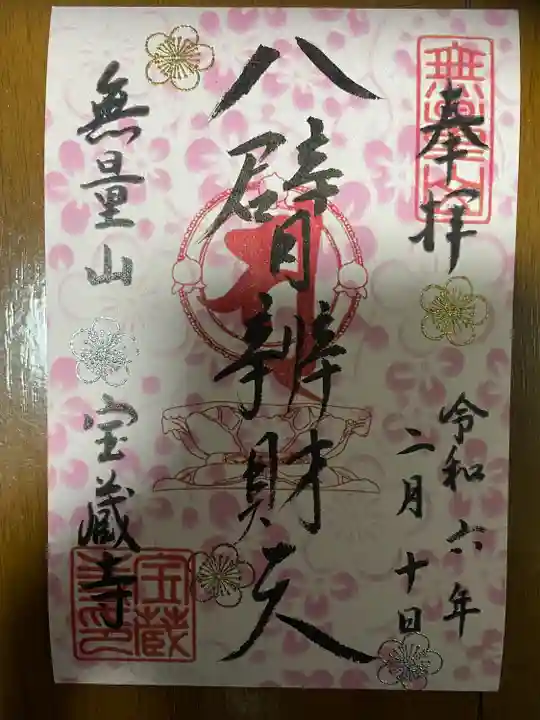 奉拝
無量山
令和六年
二月十日
八臂辨財天
無量山
宝蔵寺
宝蔵